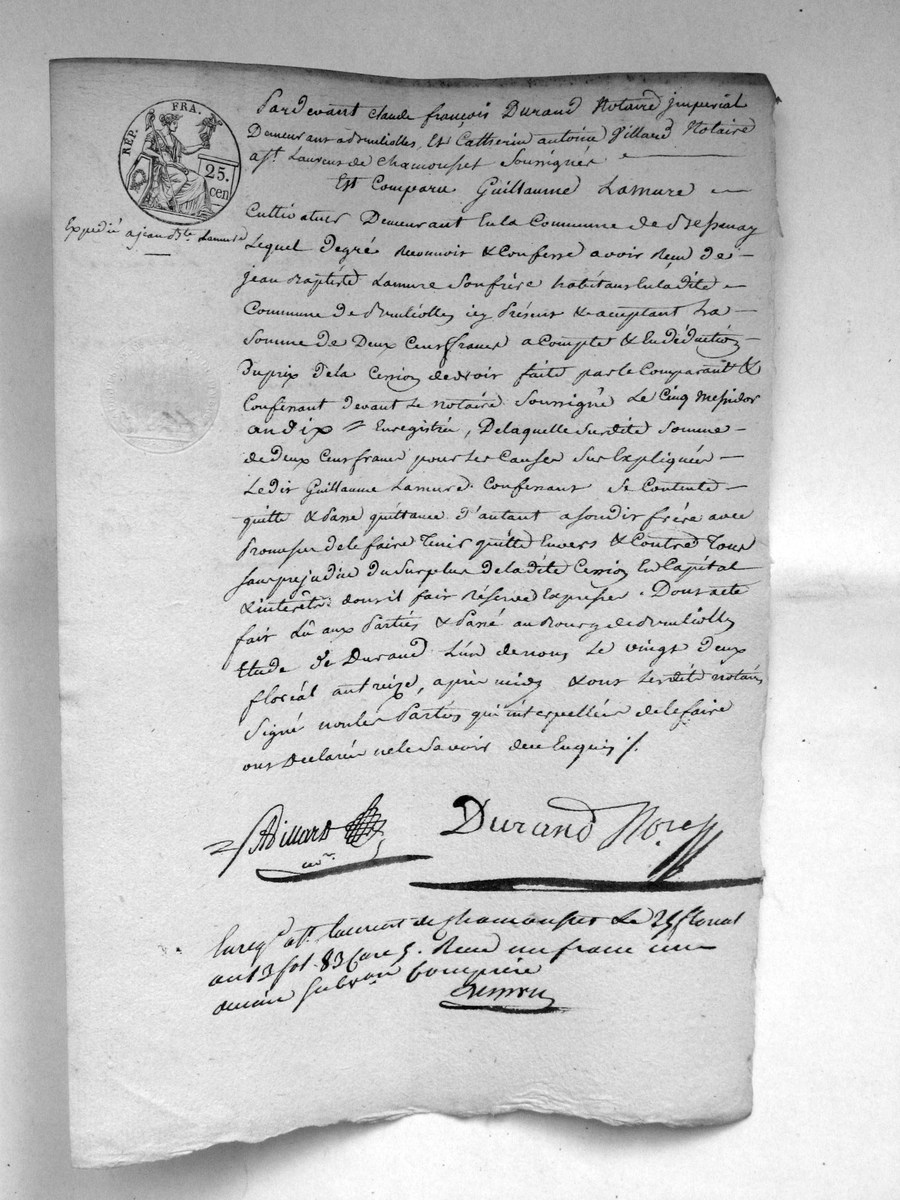 RÉP. FRA.
25.
cen
Expédié a jean Bte Lamure
Pardevant claude françois Durand Notaire jmperial
Demeurant a Brulliolles, Et Catherin antoine Villard Notaire
a St. Laurent de Chamousset Soussignés
Est Comparu Guillaume Lamure
Cultivateur Demeurant En la Commune de Bessenay
Lequel de gré Reconnoit & Confesse avoir Reçu de
jean Baptiste Lamure Son frère habitant En la dite
Commune de Brulliolles icy Présent & acceptant La
Somme de Deux Cent francs a Compte & En déduction
Du prix De la Cession de droit faite par le Comparant &
Confessant Devant le notaire Soussigné Le Cinq Messidor
an dix Enregistrée, De laquelle Susdite Somme
de deux Cent francs pour les Causes Sus Expliquées
Le dit Guillaume Lamure Confessant Se Contente
quitte & Passe quittance d'autant a son dit frère avec
Promesse de le faire Tenir quitte Envers & Contre Tous
Sans préjudice du Surplus de la dite Cession En Capital
& interêts dont il fait réserve Expresse. Dont acte
fait Lû aux Parties & Passé au Bourg de Brulliolles
Etude de Durand L'un de nous Le vingt Deux
floréal an treize, après midy & ont Lesdits notaires
Signé non les Parties qui interpellées de le faire
ont Déclaré ne le Savoir de ce Enquis /.
Villard
Durand Nore
Enregé a St. Laurent de Chamousset Le 25 floreal
an 13 fol. 83 Case 5. Recu un franc
dixième Subvon Comprise